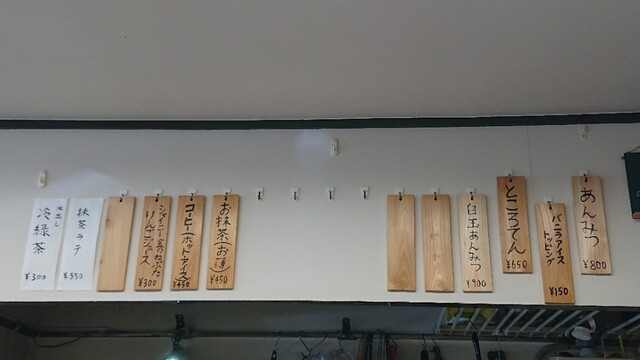 あんみつ
¥800
バニラアイス
トッピング
¥150
ところてん
¥650
白玉あんみつ
¥900
お抹茶(お薄)
¥450
コーヒー(ホット・アイス)
¥450
シャイニー金のねぶた
りんごジュース
¥300
抹茶ラテ
¥550
水出し
冷緑茶
¥300